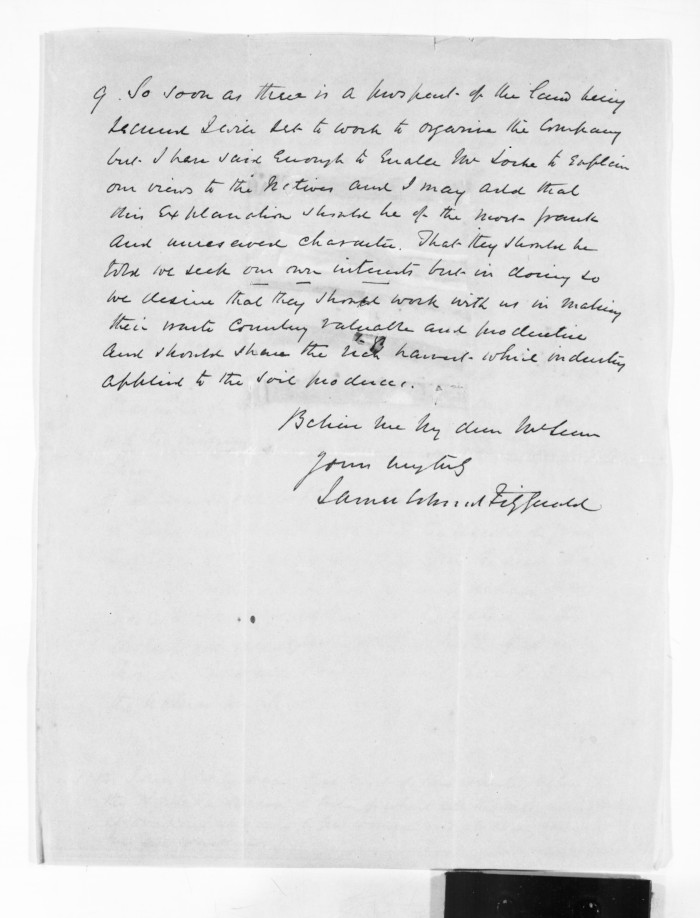 9. So soon as there is a prospect of the land being
secured I will set to work to organise the Company
but I have said enough to enable Mr Locke to explain
our views to the Natives and I may add that
this explanation should be of the most frank
and unreserved character. That they should be
told we seek our own interests but in doing so
we desire that they should work with us in making
their waste country valuable and productive
and should share the rich harvest which industry
applied to the soil produces.
Believe me my dear McLean
Yours very truly
James Edward FitzGerald